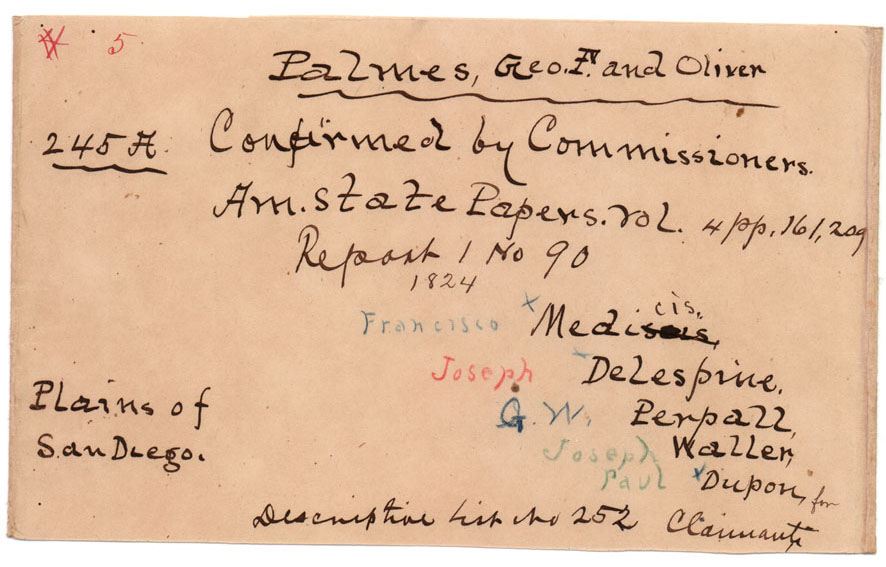 5
Palmes, Geo. F. and Oliver
245 A. Confirmed by Commissioners.
Am. State Papers. Vol. 4 pp. 161, 209
Report 1 No 90
1824
Francisco x Medicis,
Joseph x DeLespine,
G. W. Perpall,
Joseph Waller,
Paul x Dupon, for
Claimants
Plains of
San Diego.
Descriptive List No 252